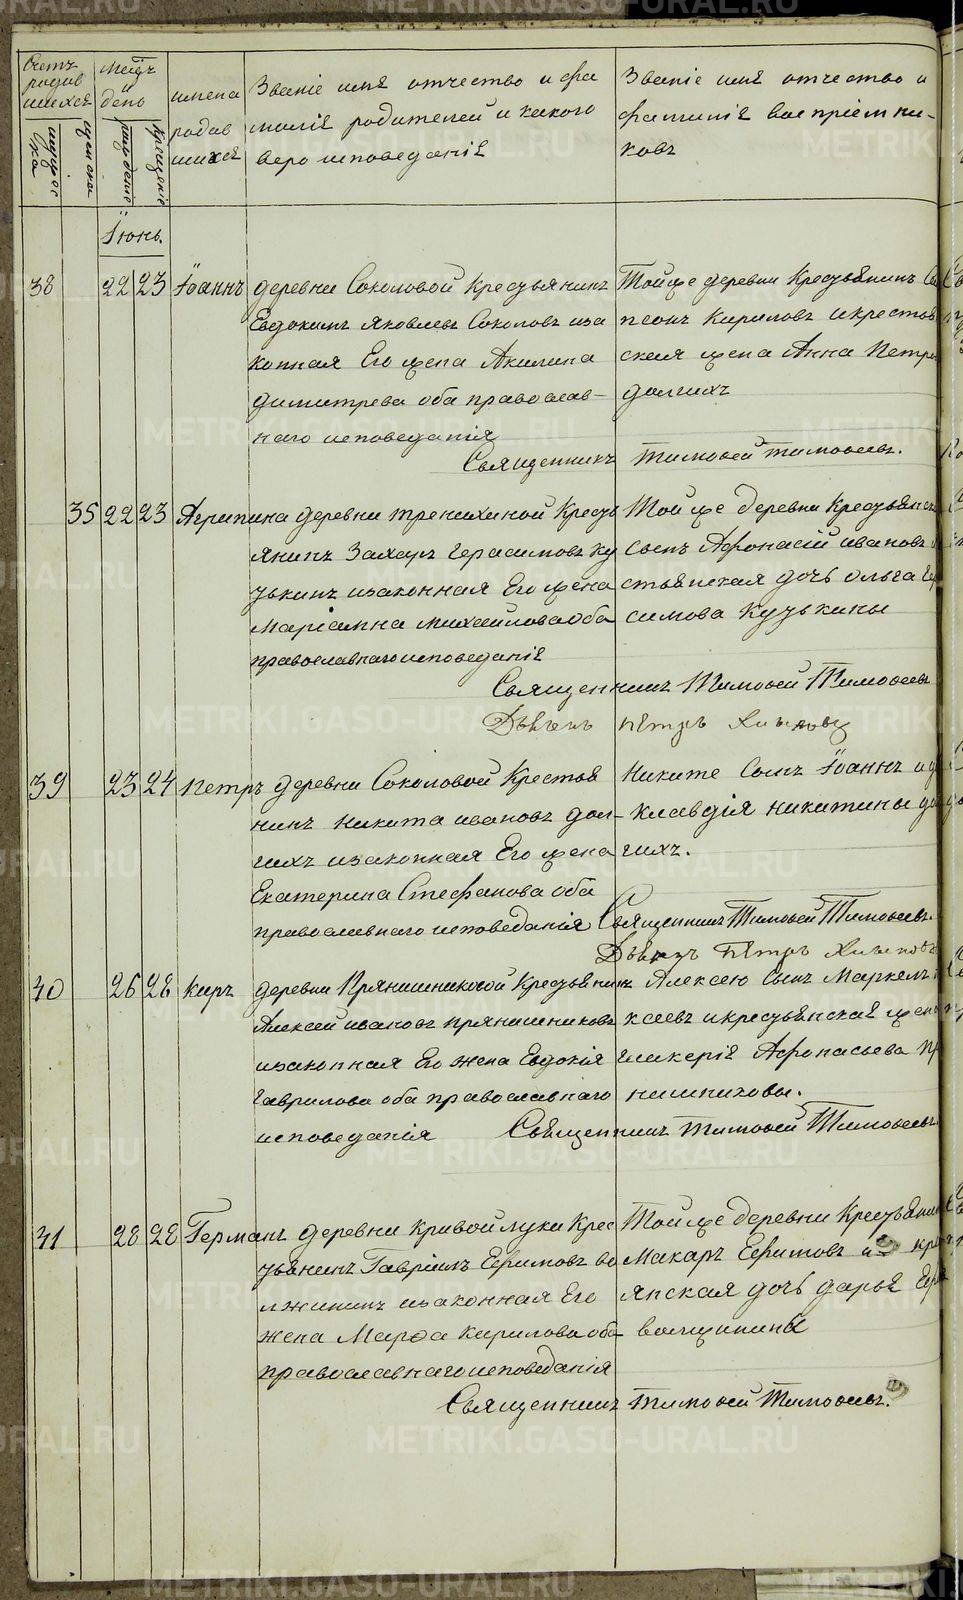 Счетъ родив шихся
мужес ка
женска
Месяцъ и день
рождение
крещение
имена родив шихся
Званіе имя отчество и фа
миліе родителей и какого
вероисповеданія
Званіе имя отчество и
фамиліе воспріемни-
ковъ
Іюнь.
38 22 23 Іоаннъ деревни Соколовой Крестьянинъ
Евдокимъ Яковлевъ Соколовъ иза
конная Его жена Акилина
Димитрева оба православ-
наго исповеданія
Тойже деревни Крестьянинъ
Кириловъ икрестьян
ская жена Анна Петро
долгихъ
Священникъ Тимофей Тимофеевъ.
35 22 23 Агрипина деревни Тренихиной Кресть
янинъ Захаръ Герасимовъ Ку
зькинъ изаконная Его жена
Маріамна Михайлова оба
православнаго исповеданія
Тойже деревни Крестьянск
сынъ Афонасій Ивановъ
стьянская дочь Ольга Гера
симова Кузькины
Священникъ Тимофей Тимофеевъ
Дьячекъ Петръ Хлыновъ
39 23 24 Петръ деревни Соколовой Крестья
нинъ Никита Ивановъ Дол-
гихъ изаконная Его жена
Екатерина Стефанова оба
православнаго исповеданія
Никите Сынъ Іоаннъ и д
Клавдія Никитины До
гихъ.
Священникъ Тимофей Тимофеевъ.
Дьячекъ Петръ Хлыновъ
40 26 28 Киръ деревни Прянишниковой Крестьянинъ
Алексей Ивановъ Прянишниковъ
изаконная Его жена Евдокія
Гаврилова оба православнаго
исповеданія
Алексею Сынъ Маркелъ
ксеевъ икрестьянская жена
Гликерія Афонасьева Пр
нишниковы.
Священникъ Тимофей Тимофеевъ
41 28 28 Германъ деревни Кривой луки Крес
тьянинъ Гавріилъ Ефимовъ Во
лжининъ изаконная Его
жена Марфа Кирилова оба
православнаго исповеданія
Тойже деревни Крестьянин
Макаръ Ефимовъ и кре
янская дочь Дарья Ефи
волщинины
Священникъ Тимофей Тимофеевъ.
METRIKI.GASO-URAL.RU